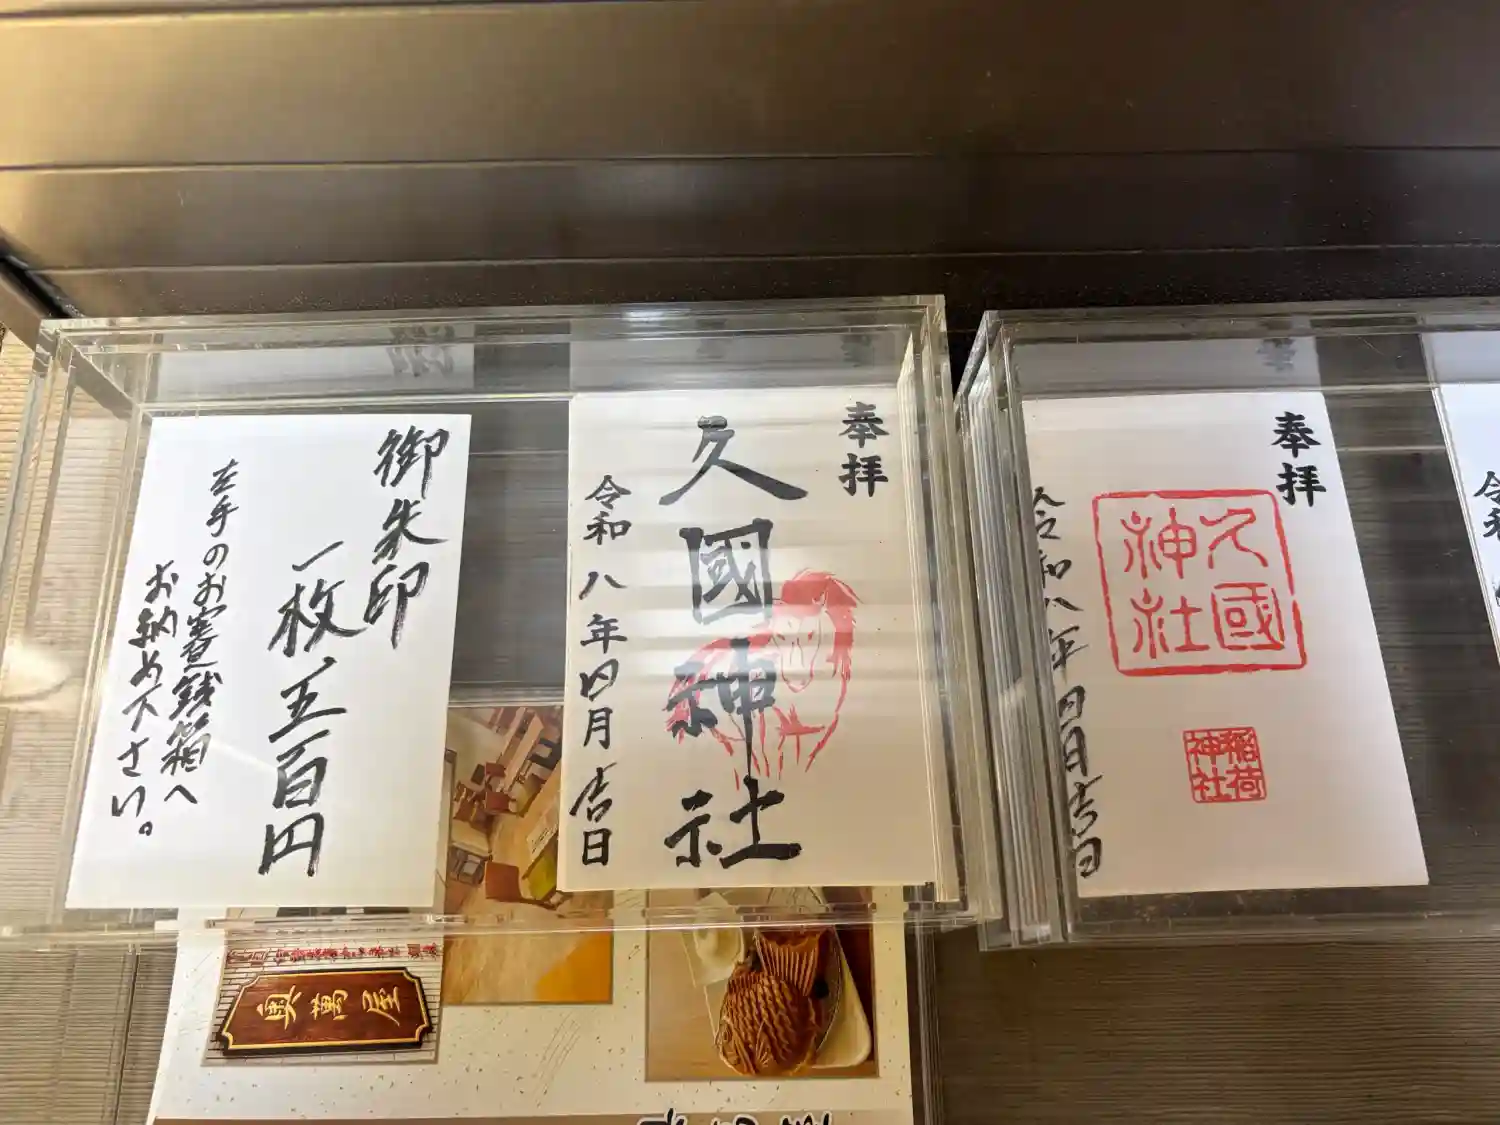 御朱印
一枚、五百円
左手のお賽銭箱へ
お納め下さい。
奉拝
久國神社
令和八年四月吉日
奉拝
久國
神社
稲荷
神社
令和八年四月吉日
奥萬屋